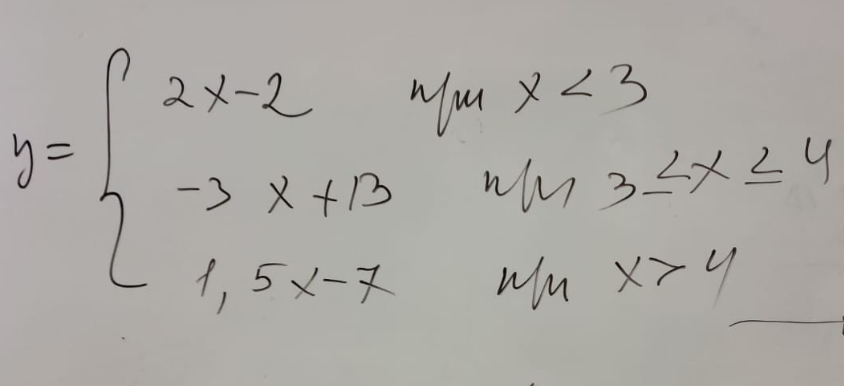 y = { 2x-2 при x < 3
-3x+13 при 3 ≤ x ≤ 4
1,5x-7 при x > 4